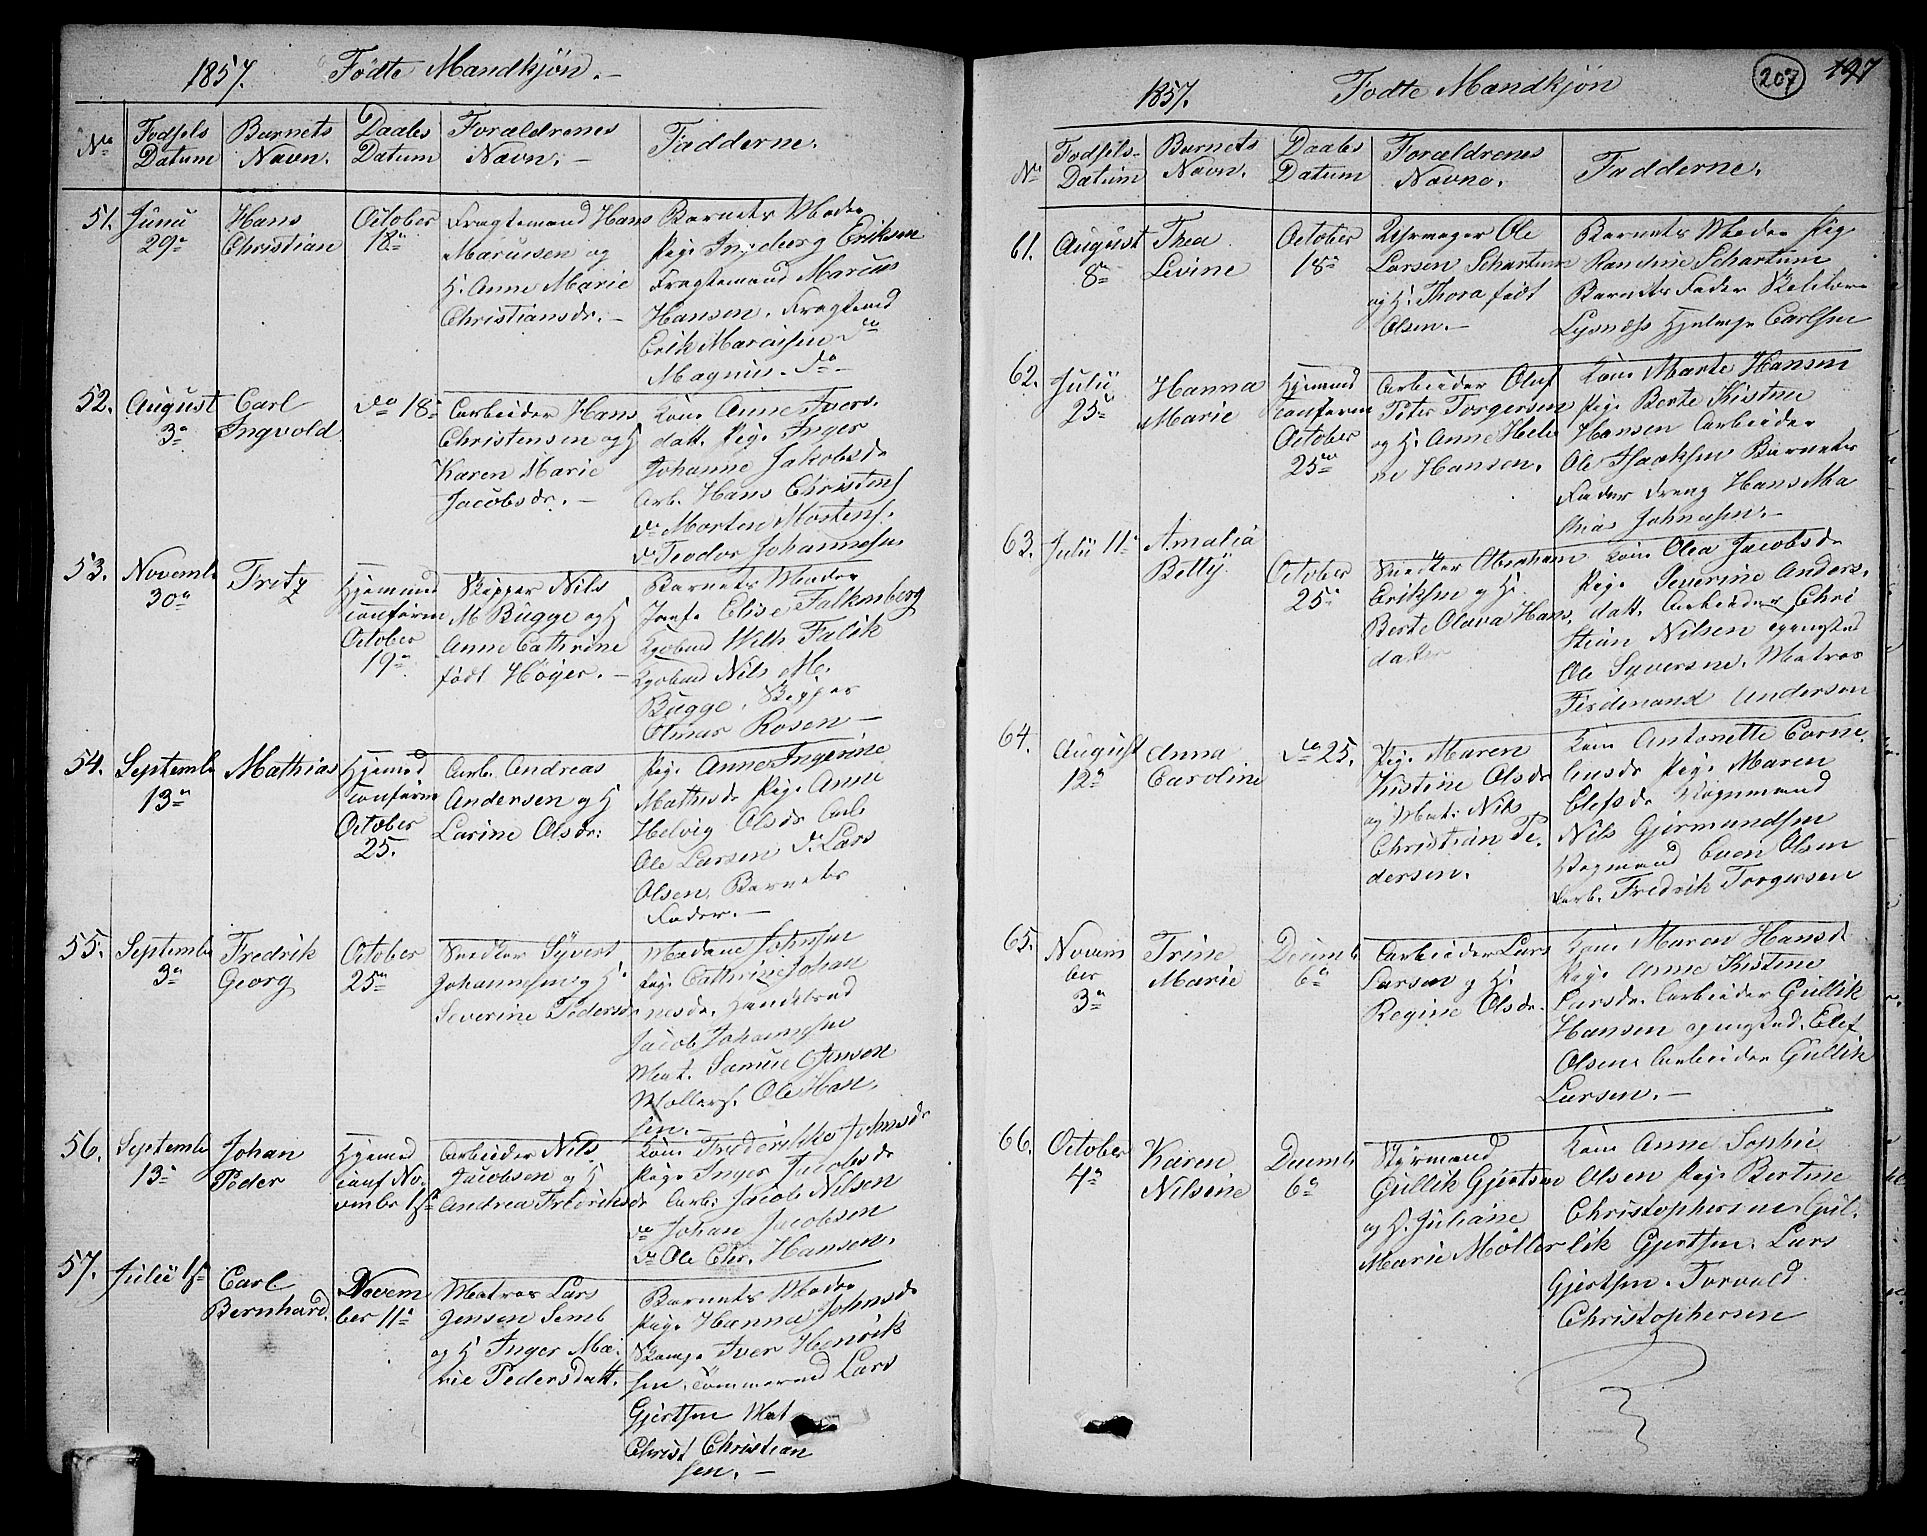 1857. Födte Mandkjön. –
No
Fodsels Datum
Barnets Navn.
Daabs Datum
Forældrenes Navn. –
Fadderne.
51. Junii 29de
Hans Christian
October 18de
Fragtemand Hans
Marcusen og
H. Anne Marie
Christiansdr. –
Barnets Moder
Pige Ingeborg Eriksen
Fragtemand Marcus
Hansen, Fragtemd
Erik Marcusen do
Magnus do –
52. August 3de
Carl Ingvold
do 18de
Arbeider Hans
Christensen og H
Karen Marie
Jacobsdr. –
Kone Anne Ivers
datt. Pige Inger
Johanne Jakobsdr
Arb. Hans Christens
do Morten Mortens.
do Teodor Johannesen
53. Novemb 30de
Fritz
Hjemmed
conferm
October
19de
Skipper Nils
M Bugge og H
Anne Cathrine
født Höyer. –
Barnets Moder
Jomf. Elise Falkenberg
Kjøbmd Wilh Falck
Kjøbmd Nils M.
Bugge, Skipper
Olmar Rosen –
54. Septemb 13de
Mathias
Hjemmed
conferm
October
25.
Arb. Andreas
Andersen og H
Larine Olsdr.
Pige Anne Ingerine
Mathisdr Pige Anne
Helvig Olsdr Arb.
Ole Larsen do Lars
Olsen, Barnets
Fader. –
55. Septemb 3de
Fredrik Georg
October 25de
Snedker Syvert
Johannesen og H.
Severine Pedersdr
Madame Johnsen
Pige Cathrine Johan
nesdr. Handelsmd
Jacob Johannesen
Mat. Samuel Jenson
Mollers. Ole Han
sen. –
56. Septemb 13de
Johan Peder
Hjemmed
conf No
vember 1ste
Arbeider Nils
Jacobsen og H
Andrea Fredriksdr
Kone Frederikke Johnsdr
Pige Inger Jacobsdr
Arb. Jacob Nilsen
do Johan Jacobsen
do Ole Chr. Hansen.
57. Julii 1ste
Carl Bernhard.
Novem
ber 11te
Matros Lars
Jensen Semb
og H Inger Ma
rie Pedersdatt.
Barnets Moder
Pige Hanna Johnsdr
Iver Henrik
sen, Tömmermd Lars
Gjertsen Mat
Christ Christian
sen. –
207 197
1857. Födte Mandkjön
No
Fodsels-Datum
Barnets Navn.
Daabs Datum
Forældrenes Navne.
Fadderne.
61. August 8de
Thea Levine
October 18de
Uhrmager Ole
Larsen Schartum
og H. Thora født
Olsen. –
Barnets Moder Pige
Schartum
Barnets Fader
Lysnæs Carlsen
62. Julii 25de
Hanna Marie
Hjemmed
conferm
October
25de
Arbeider Oluf
Peter Torgersen
og H. Anne Hele
ne Hansen.
Kone Marte Hansen
Pige Berte Kistine
Hansen Arbeider
Ole Isaksen Barnets
Fader Dreng Hans Ma
thias Johnsen. –
63. Julii 11te
Amalia Betty
October 25de
Snedker Abraham
Eriksen og H.
Berte Olava Hans
datter
Kone Olea Jacobsdr
Pige Severine Anders
datt. Arbeider Chri
stian Nilsen
Ole Syversne. Matros
Ferdenand Andersen
64. August 12te
Anna Caroline
do 25.
Pige Maren
Kistine Olsdr
og Mat: Nils
Christian Pe
dersen.
Kone Antonette Corne
liusdr Pige Maren
Olefsdr Vognmand
Nils Gjermundsen
Vognmand Even Olsen
Farb. Fredrik Torgersen
65. Novem
ber
3de
Trine Marie
Decemb 6te
Arbeider Lars
Larsen og H.
Regine Olsdr.
Kone Maren Hansdr
Pige Anne Kistine
Larsdr. Arbeider Gullik
Hansen Elef
Olsen Arbeider Gullik
Larsen. –
66. October 4de
Karen Nilsine
Decemb 6te
Styrmand
Gullik Gjertsen
og H. Juliane
Marie Möller
Kone Anne Sophie
Olsen Pige Bertine
Christophersen Gul
lik Gjertsen. Lars
Gjertsen. Torvald
Christophersen